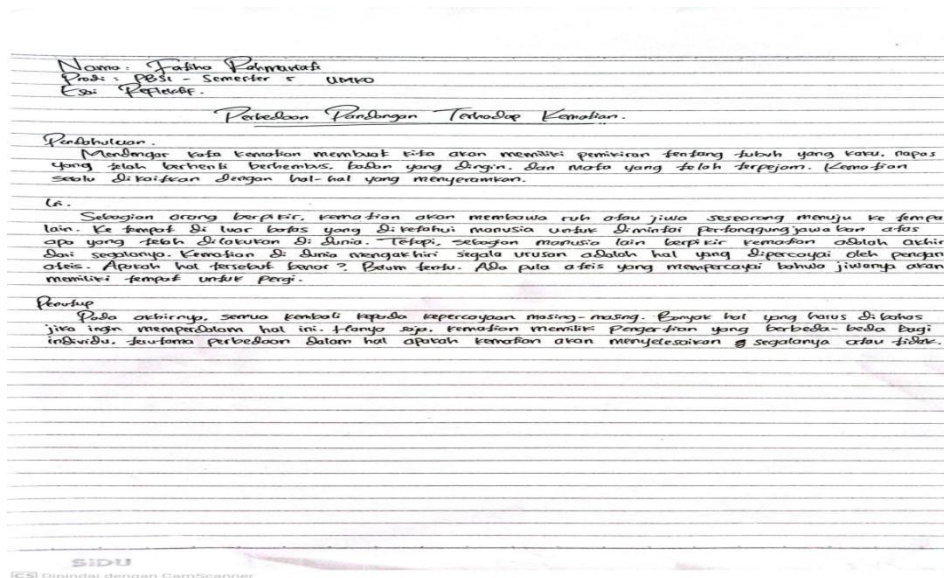 Nama : Fatiha Rahmariati
Prodi : PBSI - Semester 5 UMKO
Esai Reflektif.
Perbedaan Pandangan Terhadap Kematian.
Pendahuluan.
Mendengar kata kematian membuat kita akan memiliki pemikiran tentang tubuh yang kaku, napas
yang telah berhenti berhembus, badan yang dingin, dan mata yang telah terpejam. Kematian
selalu dikaitkan dengan hal-hal yang menyeramkan.
Isi.
Sebagian orang berpikir, kematian akan membawa ruh atau jiwa seseorang menuju ke tempa
lain. Ke tempat di luar batas yang diketahui manusia untuk dimintai pertanggungjawaban atas
apa yang telah dilakukan di dunia. Tetapi, sebagian manusia lain berpikir kematian adalah akhir
dari segalanya. Kematian di dunia mengakhiri segala urusan adalah hal yang dipercayai oleh pengan
ateis. Apakah hal tersebut benar? Belum tentu. Ada pula ateis yang mempercayai bahwa jiwanya akan
memiliki tempat untuk pergi.
Penutup
Pada akhirnya, semua kembali kepada kepercayaan masing-masing. Banyak hal yang harus dibahas
jika ingin memperdalam hal ini. Hanya saja, kematian memiliki pengertian yang berbeda-beda bagi
individu, terutama perbedaan dalam hal apakah kematian akan menyelesaikan segalanya atau tidak.
SiDU
CS Dipindai dengan CamScanner